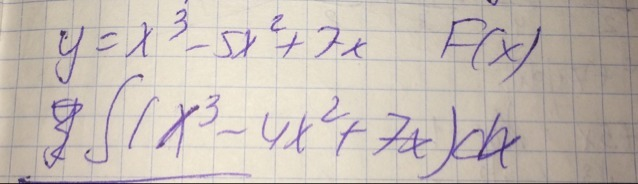 y = x³ - 5x² + 7x F(x)
∫(x³ - 4x² + 7x)dx